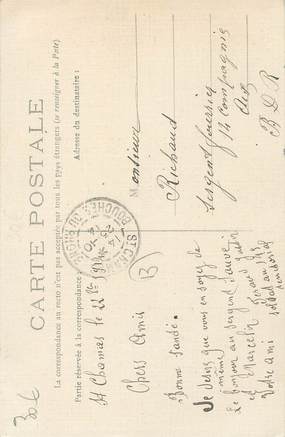 CARTE POSTALE
La correspondance au recto n'est pas acceptée par tous les pays étrangers (se renseigner à la Poste)
Partie réservée à la correspondance
Adresse du destinataire:
36
St Chamas le 22
Chers Amis
Bonne Santé.
Je désire que vous en soyez de
même.
le bonjour au sergent Sauve
et Marcelin
Votre ami
Monsieur
Richaud
Sergent fourrier
14 Compagnie
B D R
ST CHAMAS
BOUCHES DU RHONE